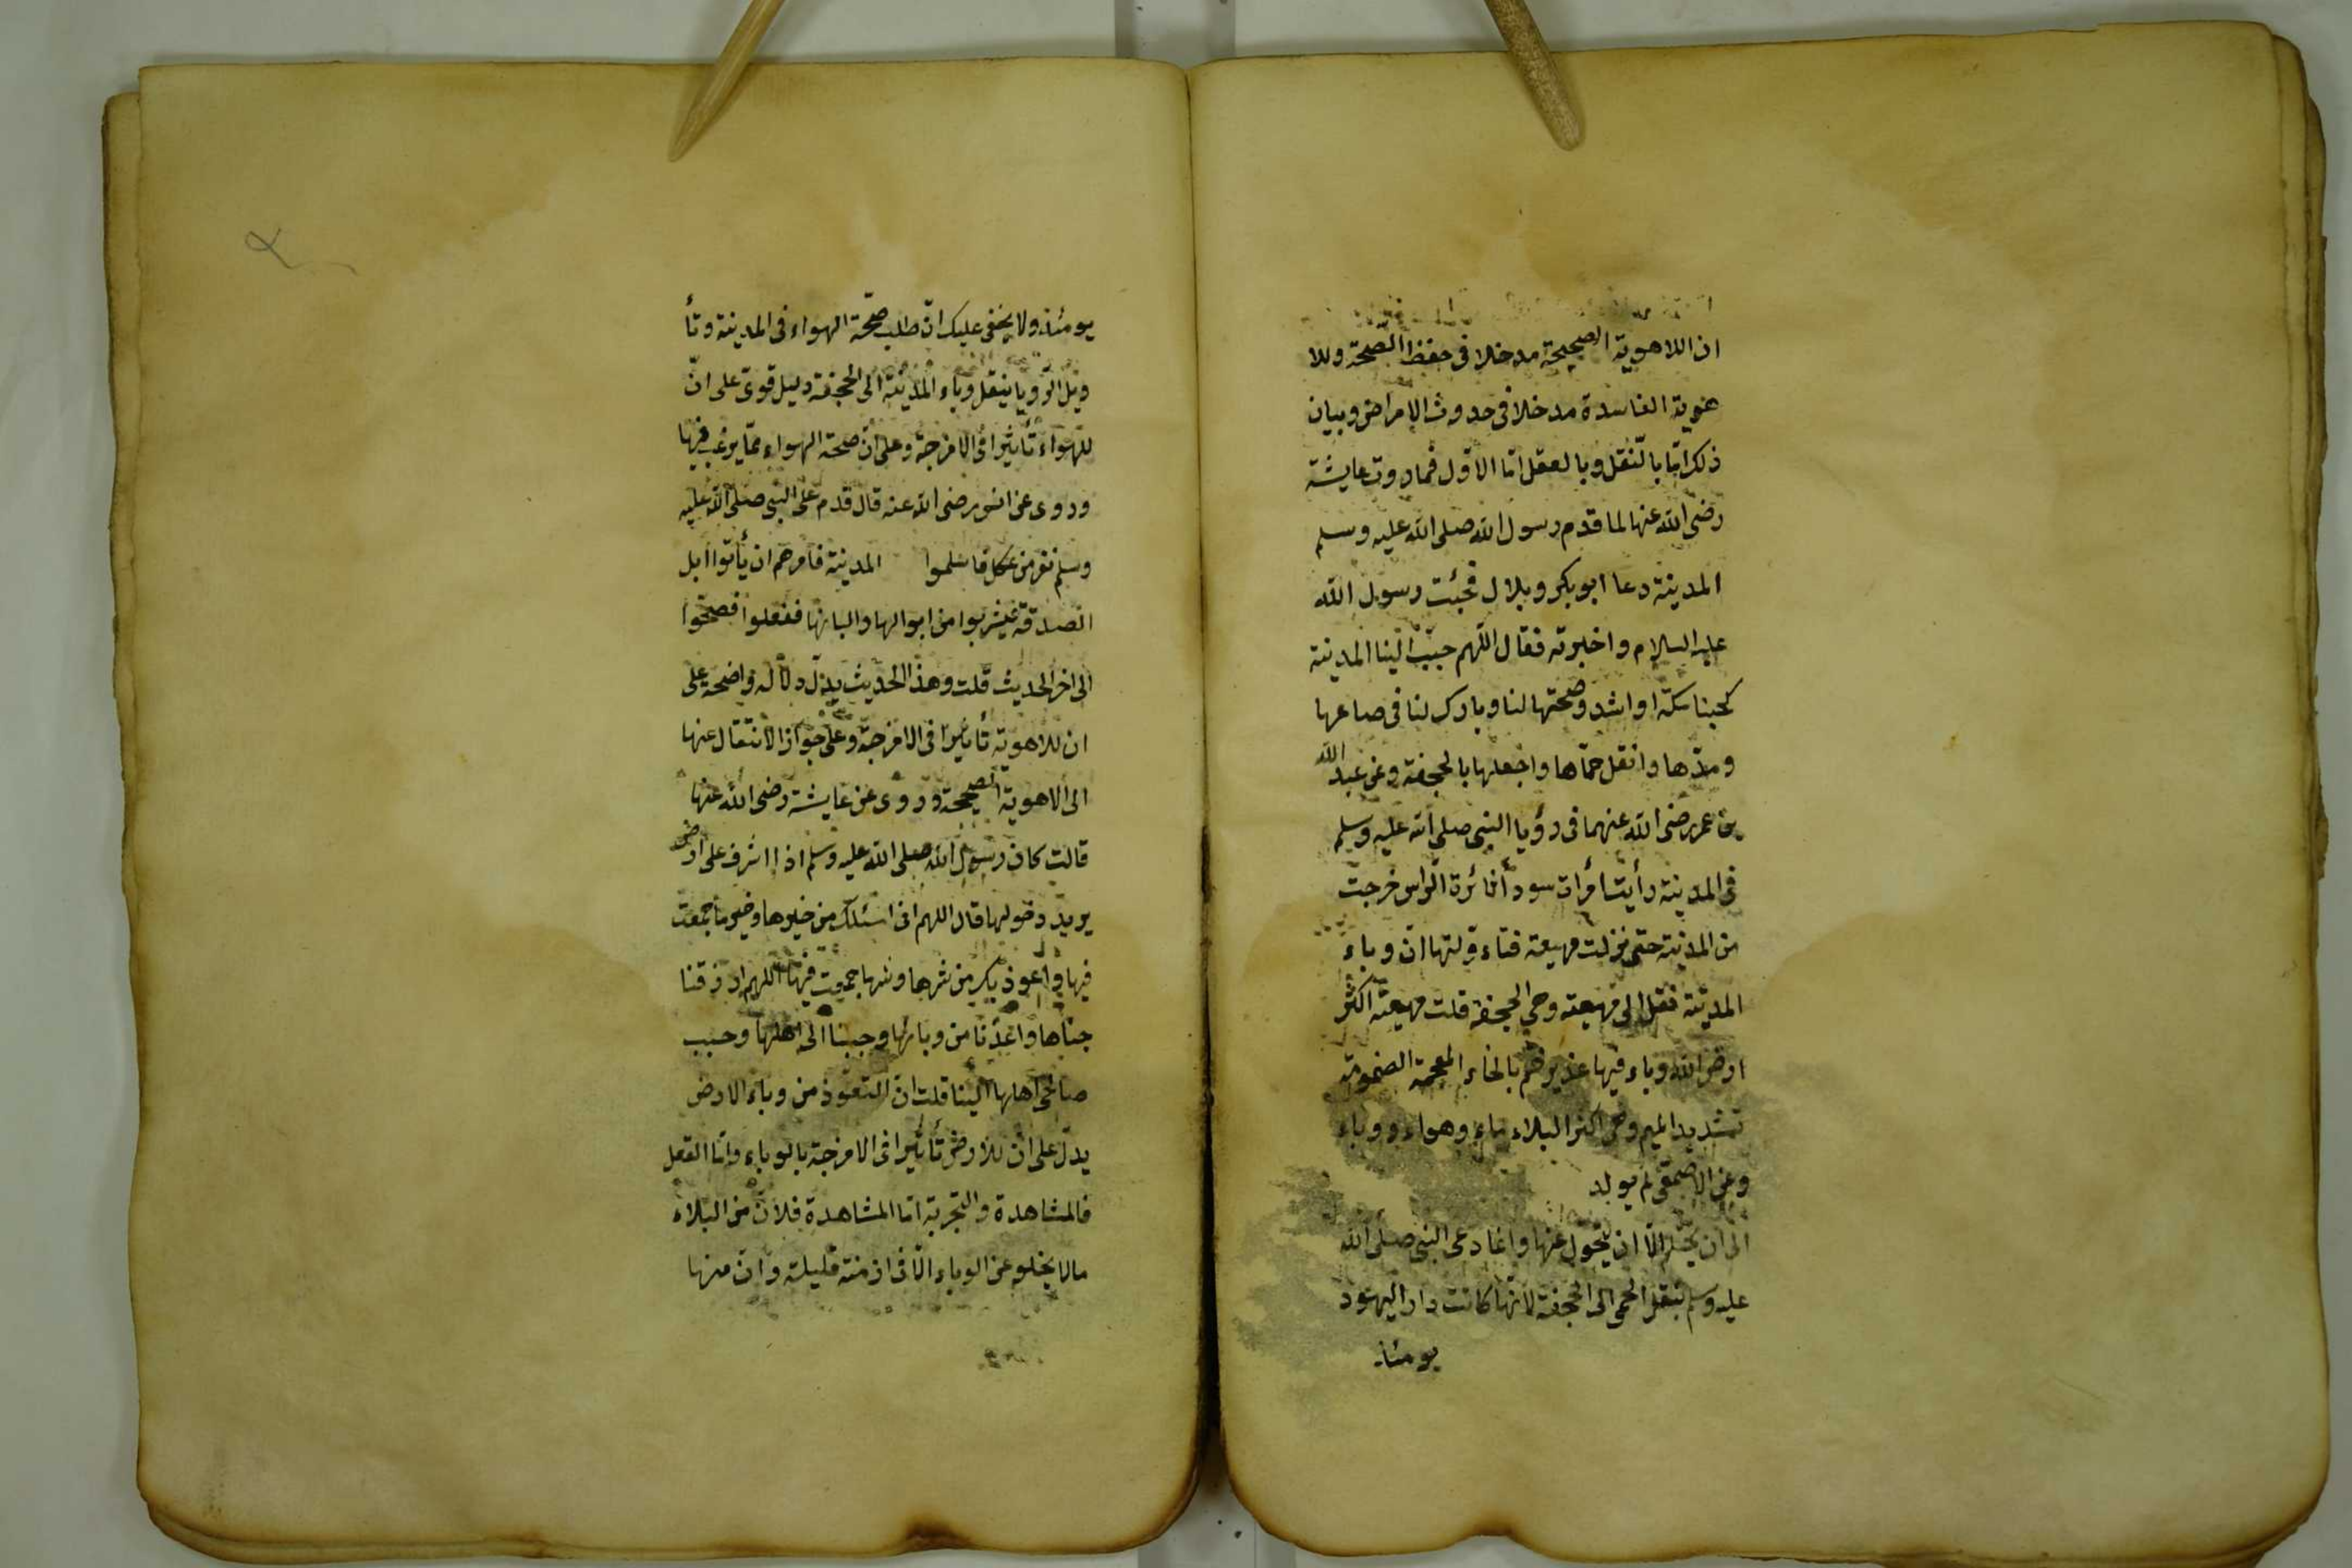 ان اللاهوية الصحيحة مدخلا فى حفظ الصحة وللا
هوية الفاسدة مدخلا فى حدوث الامراض وبيان
ذلك امّا بالنّقل وبالعقل امّا الاوّل فماروت عايشة
رضى الله عنها لما قدم رسول الله صلى الله عليه وسلم
المدينة دعا ابو بكر وبلال فجئت رسول الله
عليه السلام واخبرته فقال اللّهم حبّب الينا المدينة
كحبنا مكّة او اشد وصحّتها لنا وبارك لنا فى صاعها
ومدّها وانقل حمّاها واجعلها بالجحفة وعن عبد الله
بن عمر رضى الله عنهما فى رؤيا النبى صلى الله عليه وسلم
فى المدينة رأيت امرأت سودأ ثائرة الرّاس خرجت
من المدينة حتى نزلت مهيعة فتاء ولتها انّ وباء
المدينة نقل الى مهيعة وهي الجحفة قلت مهيعة اكثر
ارض الله وباء فيها غدير خم بالخاء المعجمة المضمومة
تشديد الميم وهى اكثر البلاء ماء وهواء ووباء
وعن الاصمعى لم يولد
الى ان يحتلم الّا ان يتحول عنها وانما دعى النبى صلى الله
عليه وسلم بنقل الحمى الى الجحفة لانّها كانت دار اليهود
يومئذ
يومئذ ولا يخفى عليك انّ طلب صحّة الهواء فى المدينة وتأ
ويل الرّويا بنقل وباء المدينة الى الجحفة دليل قوىّ على انّ
للهواء تأثيرا فى الامزجة وعلى انّ صحة الهواء ممّا يرغب فيها
وروى عن انس رضى الله عنه قال قدم على النبى صلى الله عليه
وسلم نفر من عكل فاسلموا المدينة فامرهم ان يأتوا ابل
الصدقة فيشربوا من ابوالها والبانها ففعلوا فصحّوا
الى اخر الحديث قلت وهذا الحديث يدلّ دلالة واضحة على
ان للاهوية تأثيرا فى الامزجة وعلى جواز الانتقال عنها
الى الاهوية الصحيحة وروى عن عايشة رضى الله عنها
قالت كان رسول الله صلى الله عليه وسلم اذا اشرف على ارض
يريد دخولها قال اللهم انى اسئلك من خيرها وخير ما جمعت
فيها واعوذ بك من شرها وشرها جمعت فيها اللهم ارزقنا
جناها واعذنا من وبائها وحببنا الى اهلها وحبب
صالحى اهلها الينا قلت انّ التعوّذ من وباء الارض
يدلّ على انّ للارض تأثيرا فى الامزجة بالوباء وامّا العقل
فالمشاهدة والتجربة امّا المشاهدة فلانّ من البلاء
مالا يخلو عن الوباء الّا فى ازمنة قليلة وانّ منها